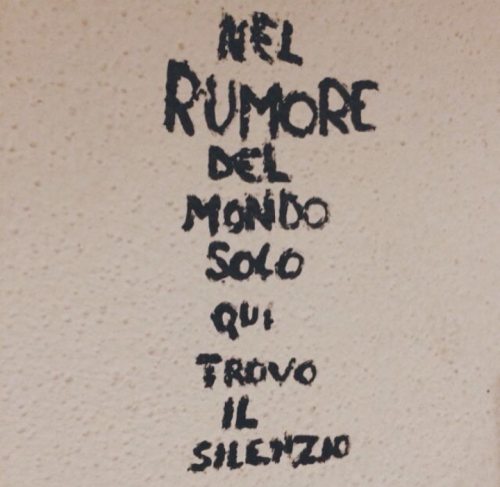 NEL
RUMORE
DEL
MONDO
SOLO
QUI
TROVO
IL
SILENZIO